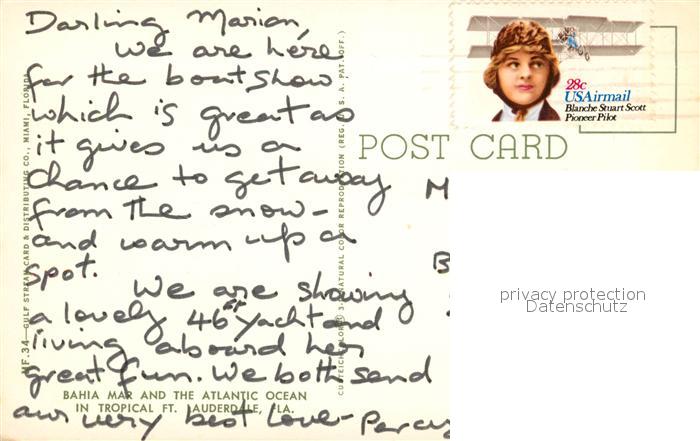 Darling Marion,
We are here
for the boat show
which is great as
it gives us a
chance to get away
from the snow -
and warm up a
spot.
We are showing
a lovely 46 ft yacht and
living aboard her
great fun. We both send
our very best love -
POST CARD
28c
USAirmail
Blanche Stuart Scott
Pioneer Pilot
M
B
privacy protection
Datenschutz
MF.34—GULF STREAM CARD & DISTRIBUTING CO., MIAMI, FLORIDA
NATURAL COLOR REPRODUCTION (REG. U. S. A. PAT. OFF.)
BAHIA MAR AND THE ATLANTIC OCEAN
IN TROPICAL FT. LAUDERDALE, FLA.